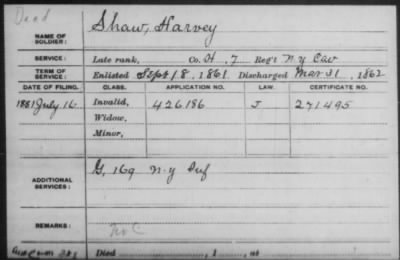 Dead
NAME OF SOLDIER: Shaw, Harvey
SERVICE: Late rank, Co. H, 7 Reg't N.Y. Cav
TERM OF SERVICE: Enlisted Sept 18, 1861 Discharged Mar 31, 1862
DATE OF FILING. CLASS. APPLICATION NO. LAW. CERTIFICATE NO.
1881 July 16 Invalid, 426186 J 271495
Widow,
Minor,
ADDITIONAL SERVICES: G, 169 N.Y. Inf
REMARKS: No C
Died , 1 , at